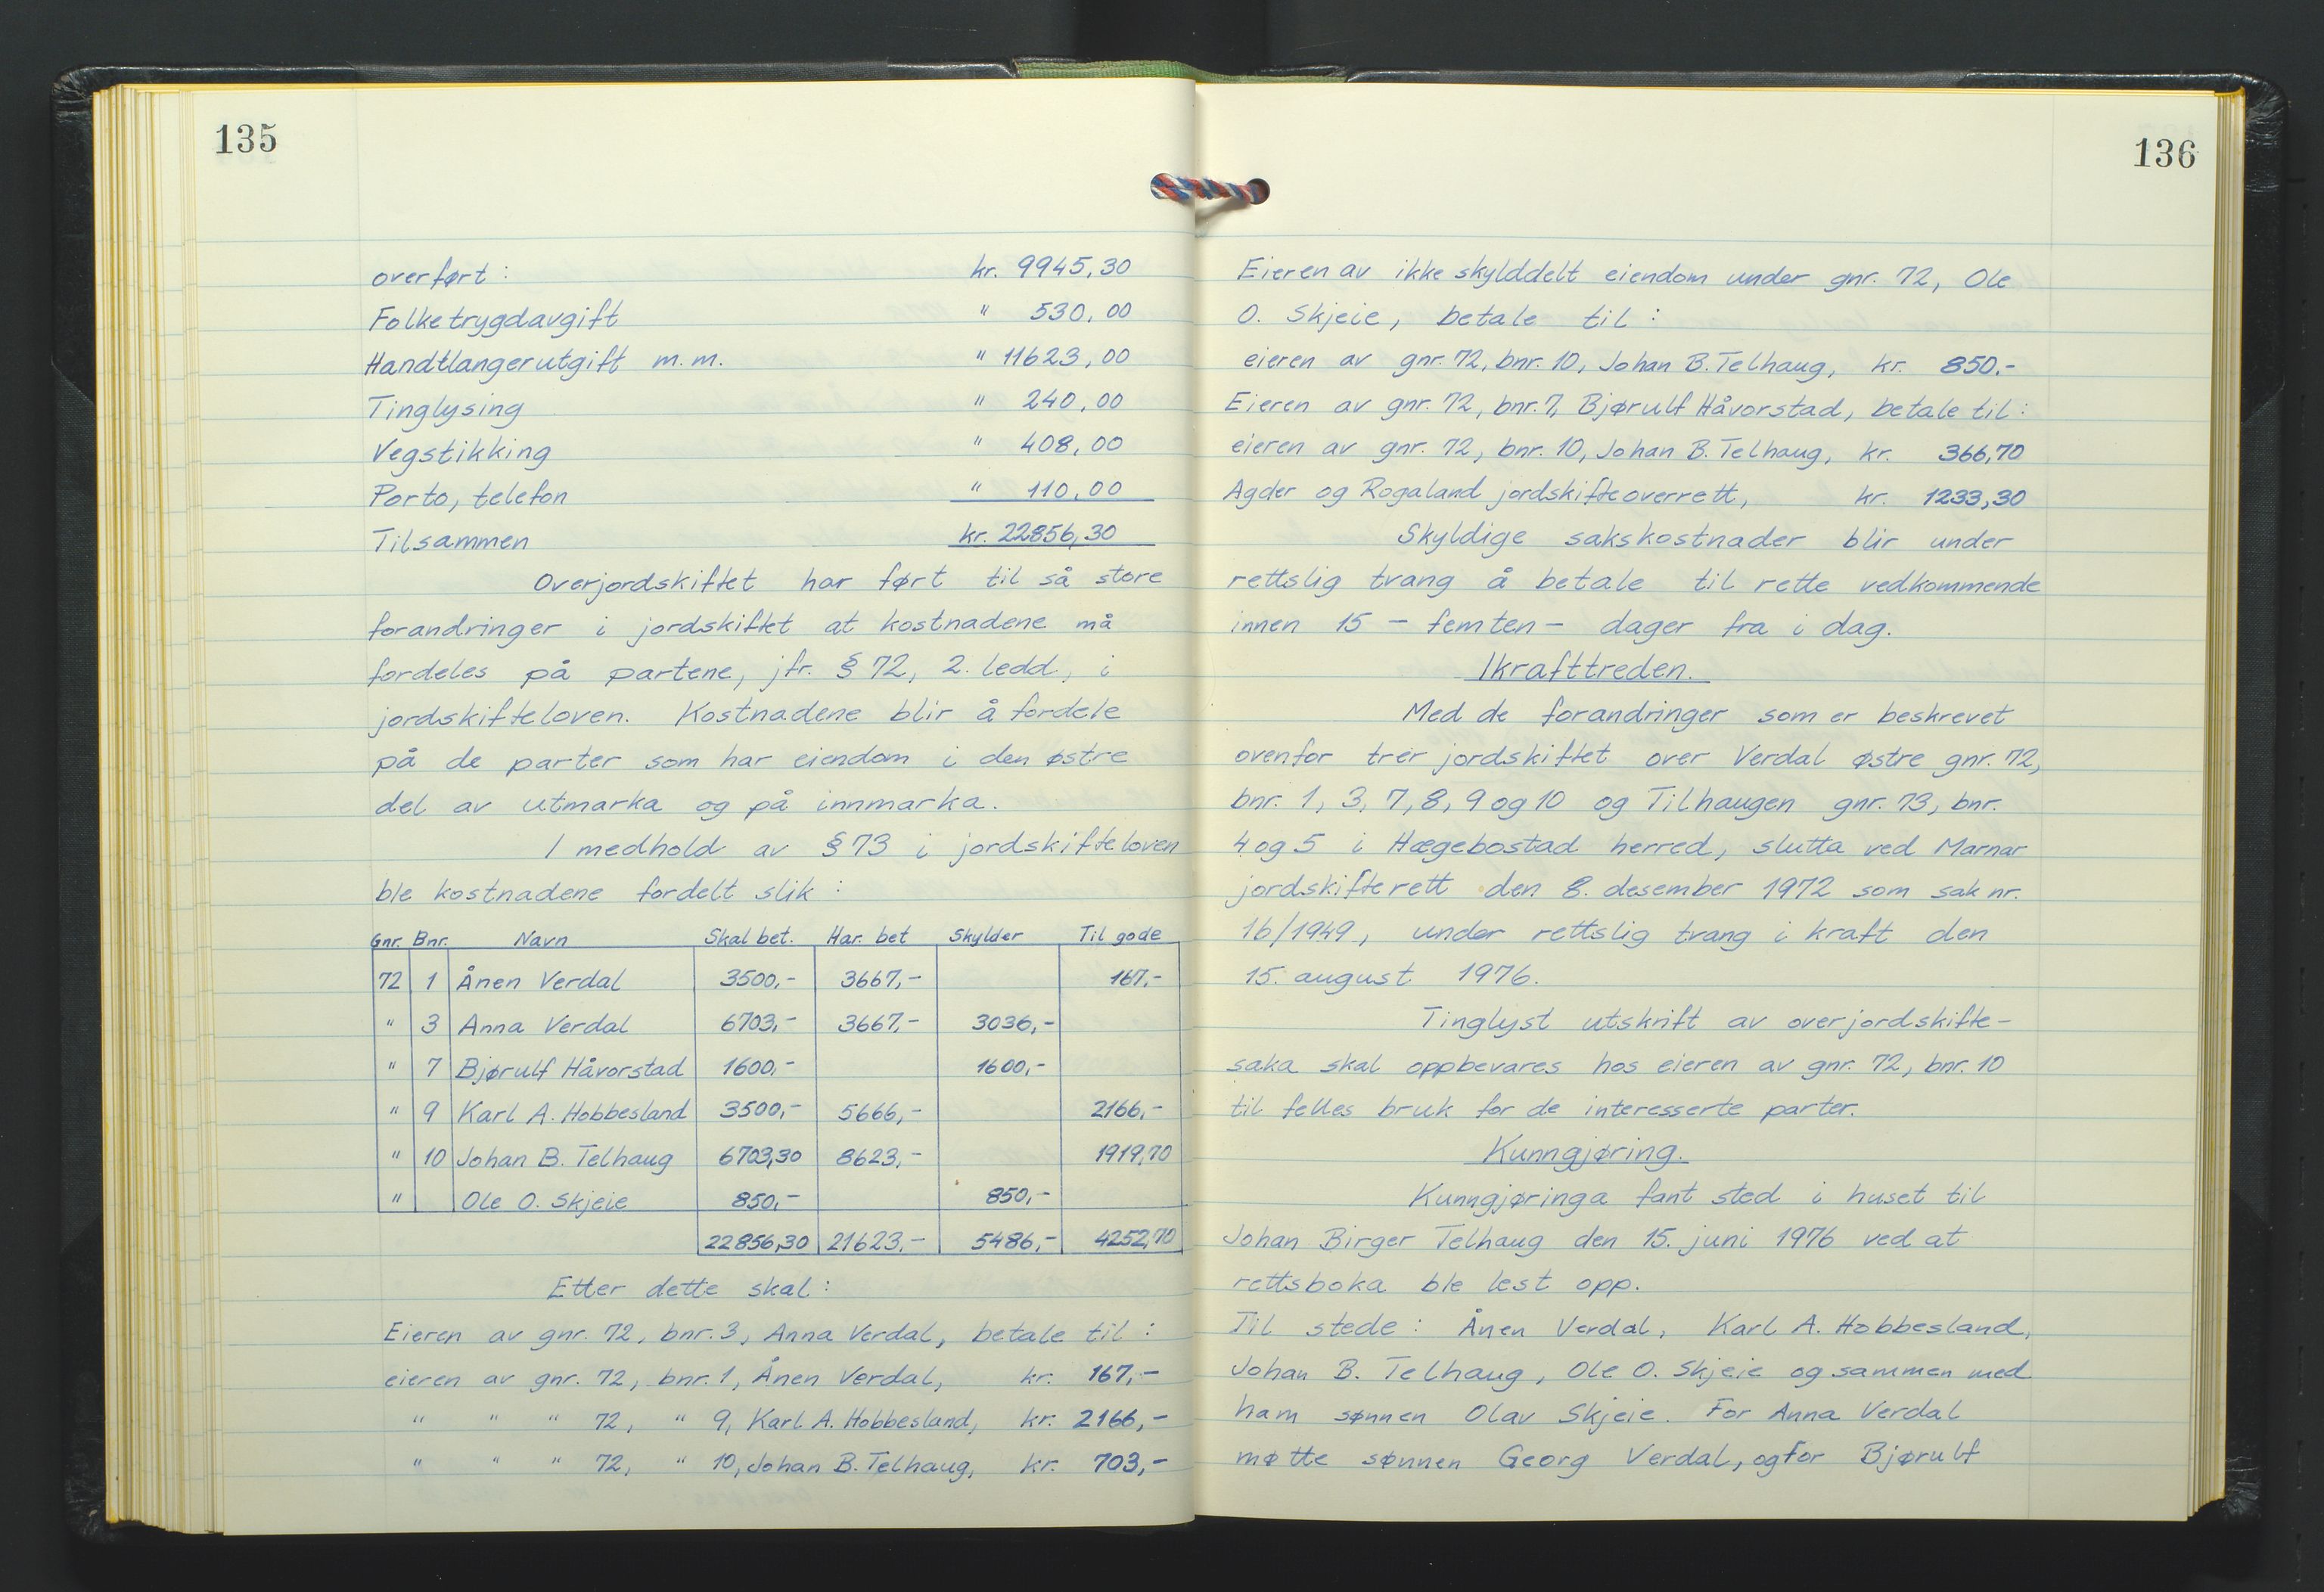 135
overført: kr. 9945,30
Folketrygdavgift " 530,00
Handtlangerutgift m.m. " 11623,00
Tinglysing " 240,00
Vegstikking " 408,00
Porto, telefon " 110,00
Tilsammen kr. 22856,30
Overjordskiftet har ført til så store
forandringer i jordskiftet at kostnadene må
fordeles på partene, jfr. § 72, 2. ledd, i
jordskifteloven. Kostnadene blir å fordele
på de parter som har eiendom i den østre
del av utmarka og på innmarka.
I medhold av § 73 i jordskifteloven
ble kostnadene fordelt slik:
Gnr. Bnr. Navn Skal bet. Har. bet Skylder Til gode
72 1 Ånen Verdal 3500,- 3667,- 167,-
" 3 Anna Verdal 6703,- 3667,- 3036,-
" 7 Bjørulf Håvorstad 1600,- 1600,-
" 9 Karl A. Hobbesland 3500,- 5666,- 2166,-
" 10 Johan B. Telhaug 6703,30 8623,- 1919,70
" Ole O. Skjeie 850,- 850,-
22856,30 21623,- 5486,- 4252,70
Etter dette skal:
Eieren av gnr. 72, bnr. 3, Anna Verdal, betale til:
eieren av gnr. 72, bnr. 1, Ånen Verdal, kr. 167,-
" " " 72, " 9, Karl A. Hobbesland, kr. 2166,-
" " " 72, " 10, Johan B. Telhaug, kr. 703,-
136
Eieren av ikke skylddelt eiendom under gnr. 72, Ole
O. Skjeie, betale til:
eieren av gnr. 72, bnr. 10, Johan B. Telhaug, kr. 850.-
Eieren av gnr. 72, bnr. 7, Bjørulf Håvorstad, betale til:
eieren av gnr. 72, bnr. 10, Johan B. Telhaug, kr. 366,70
Agder og Rogaland jordskifteoverrett, kr. 1233,30
Skyldige sakskostnader blir under
rettslig tvang å betale til rette vedkommende
innen 15 - femten - dager fra i dag.
Ikrafttreden.
Med de forandringer som er beskrevet
ovenfor trer jordskiftet over Verdal østre gnr. 72,
bnr. 1, 3, 7, 8, 9 og 10 og Tilhaugen gnr. 73, bnr.
4 og 5 i Hægebostad herred, slutta ved Marnar
jordskifterett den 8. desember 1972 som sak nr.
16/1949, under rettslig tvang i kraft den
15. august 1976.
Tinglyst utskrift av overjordskifte-
saka skal oppbevares hos eieren av gnr. 72, bnr. 10
til felles bruk for de interesserte parter.
Kunngjøring.
Kunngjøringa fant sted i huset til
Johan Birger Telhaug den 15. juni 1976 ved at
rettsboka ble lest opp.
Til stede: Ånen Verdal, Karl A. Hobbesland,
Johan B. Telhaug, Ole O. Skjeie og sammen med
ham sønnen Olav Skjeie. For Anna Verdal
møtte sønnen Georg Verdal, og for Bjørulf